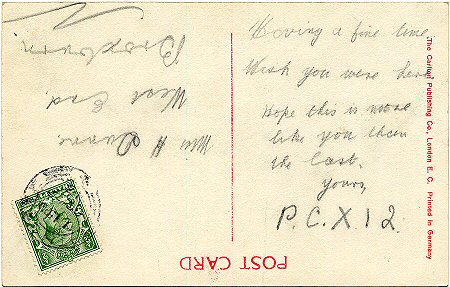 POST CARD
Having a fine time
Wish you were here
Hope this is more
like you than
the last.
yours,
P.C. X 1 2.
Miss H
West End,
Broxburn.
The Carlton Publishing Co., London E. C. Printed in Germany